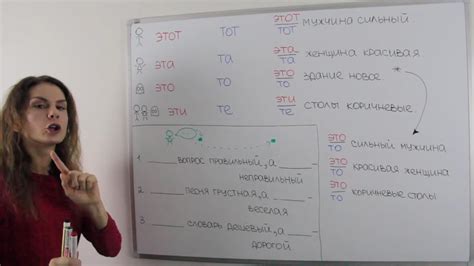 ЭТОТ ТОТ ЭТОТ/ТОТ МУЖЧИНА СИЛЬНЫЙ
ЭТА ТА ЭТА/ТА ЖЕНЩИНА КРАСИВАЯ
ЭТО ТО ЭТО/ТО ЗДАНИЕ НОВОЕ
ЭТИ ТЕ ЭТИ/ТЕ СТОЛЫ КОРИЧНЕВЫЕ
1 ВОПРОС ПРАВИЛЬНЫЙ, А
НЕПРАВИЛЬНЫЙ
2 ПЕСНЯ ГРУСТНАЯ, А
ВЕСЕЛАЯ
3 СЛОВАРЬ ДЕШЕВЫЙ, А
ДОРОГОЙ
* ЭТО/ТО СИЛЬНЫЙ МУЖЧИНА
ЭТО/ТО КРАСИВАЯ ЖЕНЩИНА
ЭТО/ТО КОРИЧНЕВЫЕ СТОЛЫ